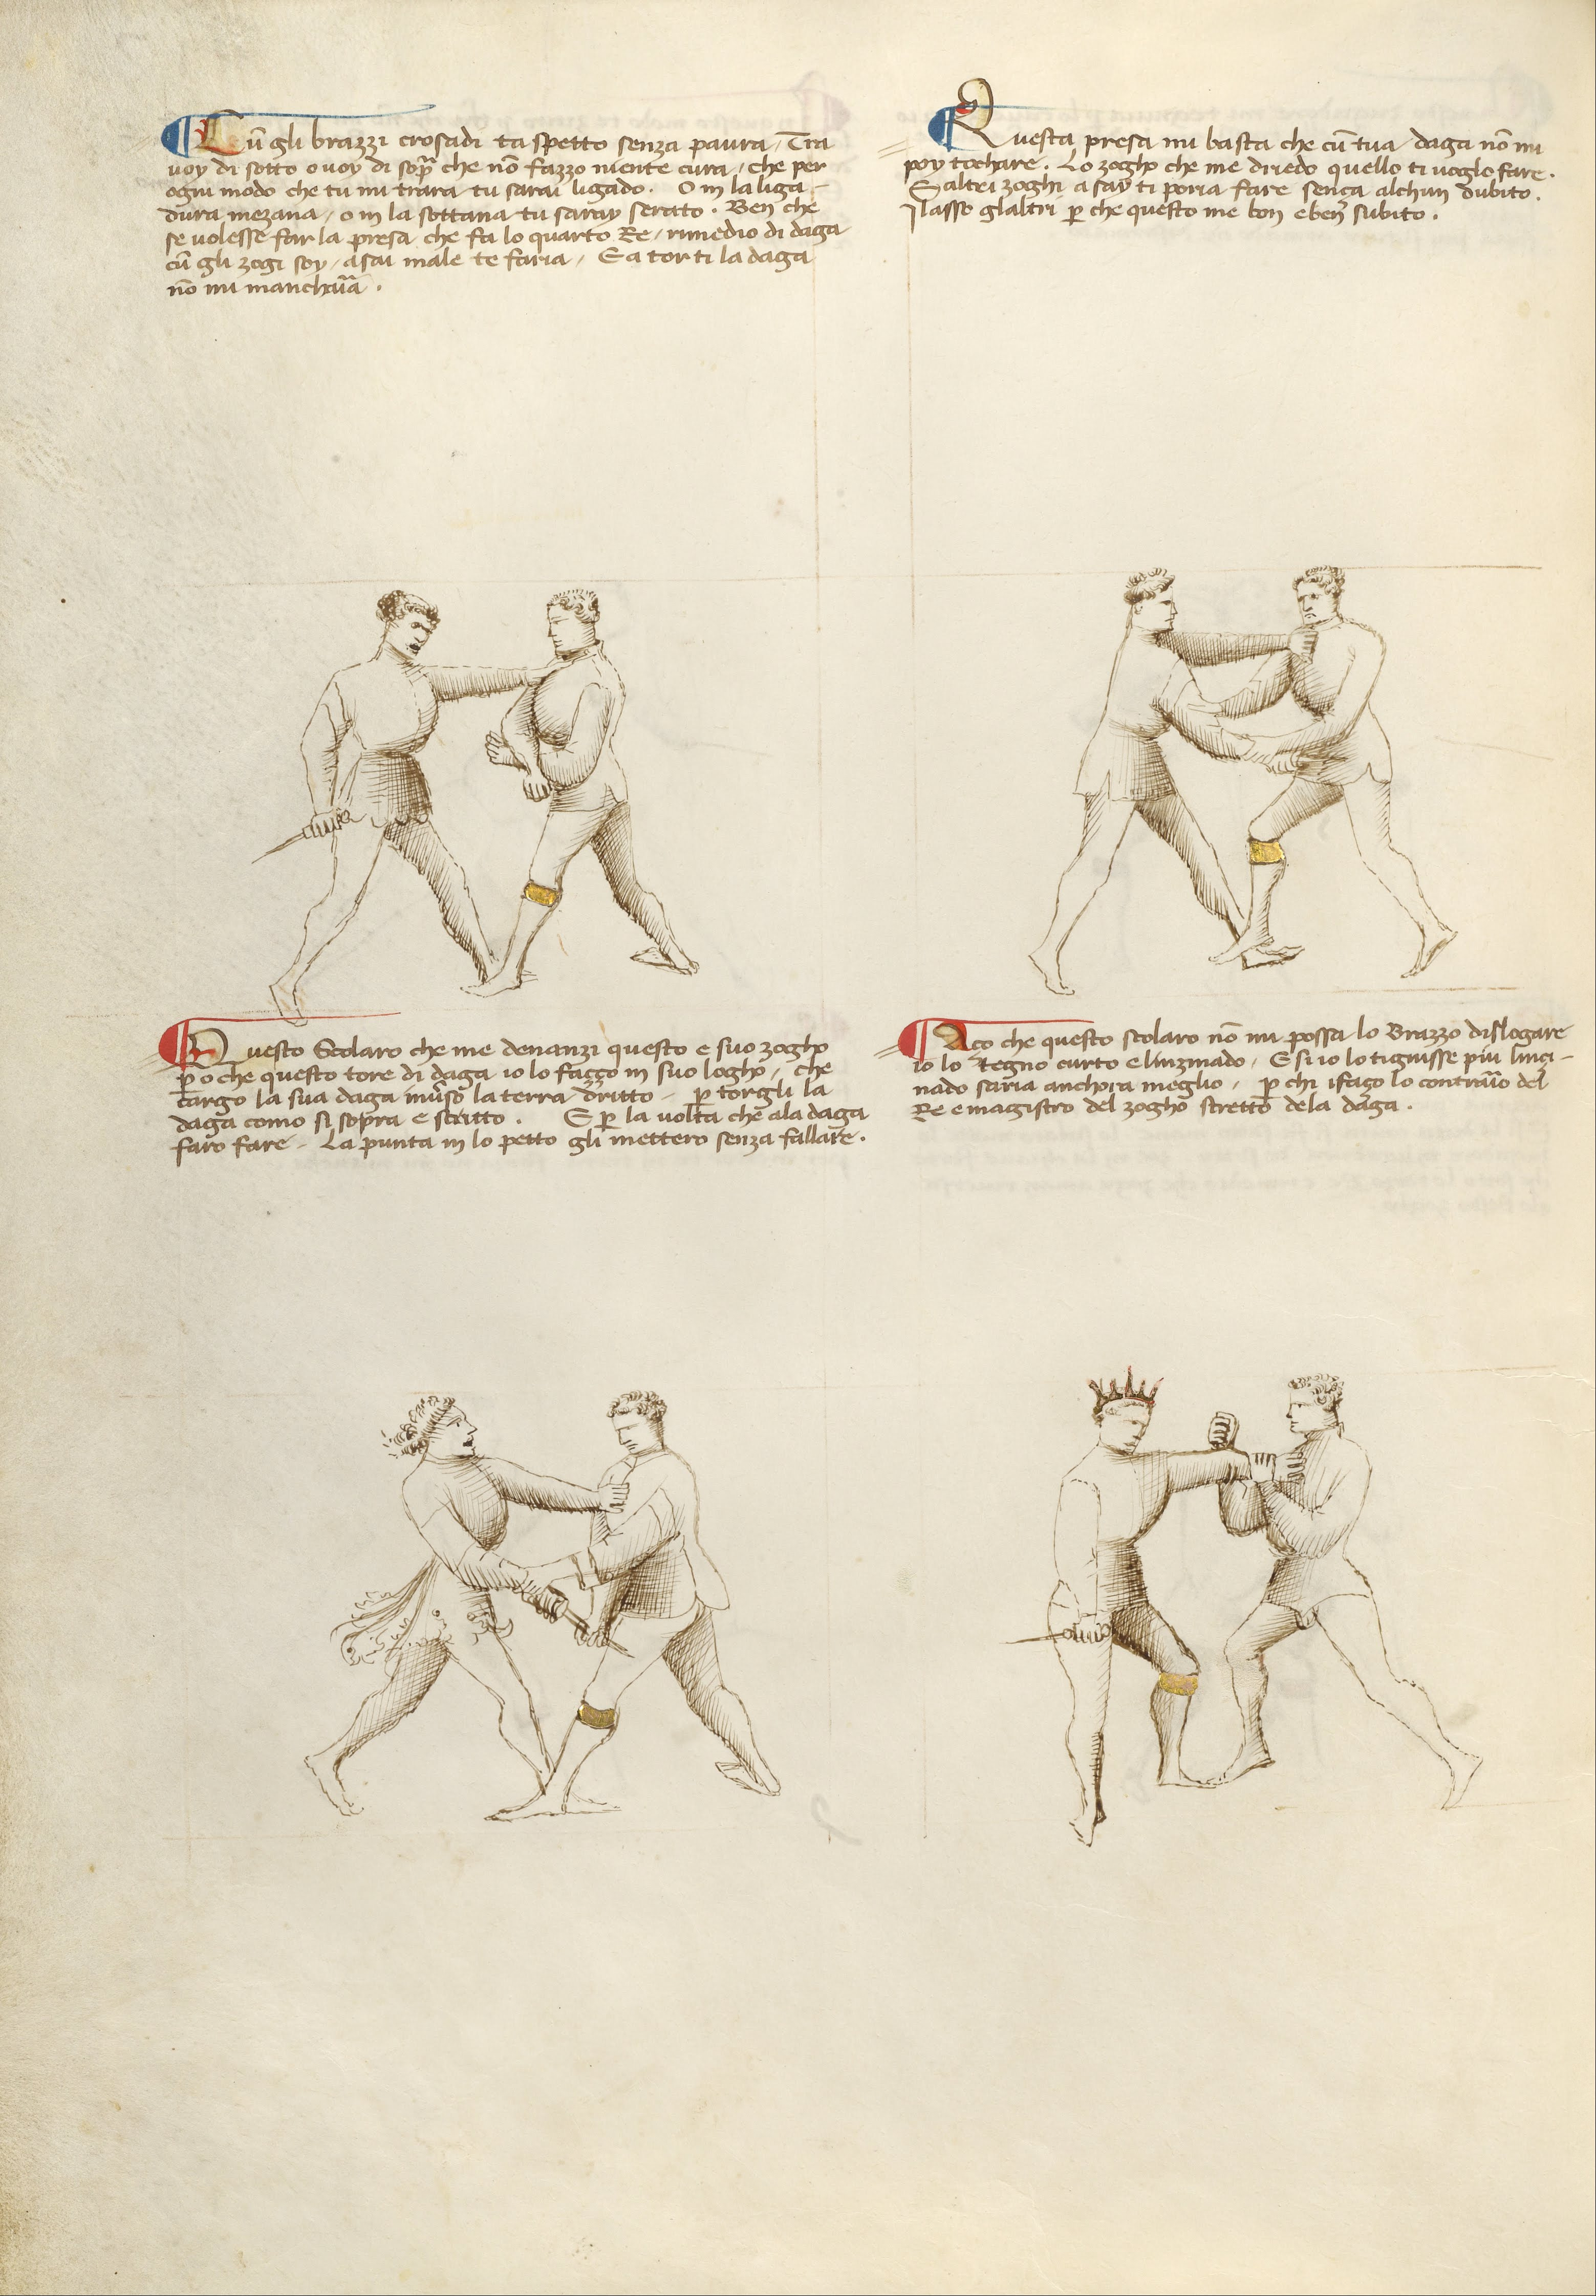 Cū gli brazzi crosadi ta spetto senza paura / Tra
uoy di sotto o uoy di sopra che nō fazzo niente cura / che per
ogni modo che tu mi trara tu sarai ligado. O in la liga-
dura mezana / o in la sottana tu saray serato. Ben che
se uolesse far la presa che fa lo quarto Re / rimedio di daga
cū gli zogi soy / asai male te faria / E a tor ti la daga
nō mi mancharia.
Questa presa mi basta che cū tua daga nō mi
poy tochare. Lo zogho che me driedo quello ti uoglo fare.
E altri zoghi asay ti poria fare sença alchun dubito.
I lasso gl altri per che questo me bon e ben subito.
Questo Scolaro che me denanzi questo e suo zogho
pero che questo tore di daga io lo faççо in suo logho / che
cargo la sua daga inverso la terra dritto - per torgli la
daga como si sopra e scritto. E per la uolta che a la daga
faro fare - La punta in lo petto gli mettero senza fallare.
Aço che questo scolaro nō mi possa lo Brazzo dislogare
io lo tegno curto e linzinado / E si io lo tignisse piu linçi-
nado saria anchora meglio / per chi i faço lo contrario del
Re e magistro del zogho stretto dela daga.